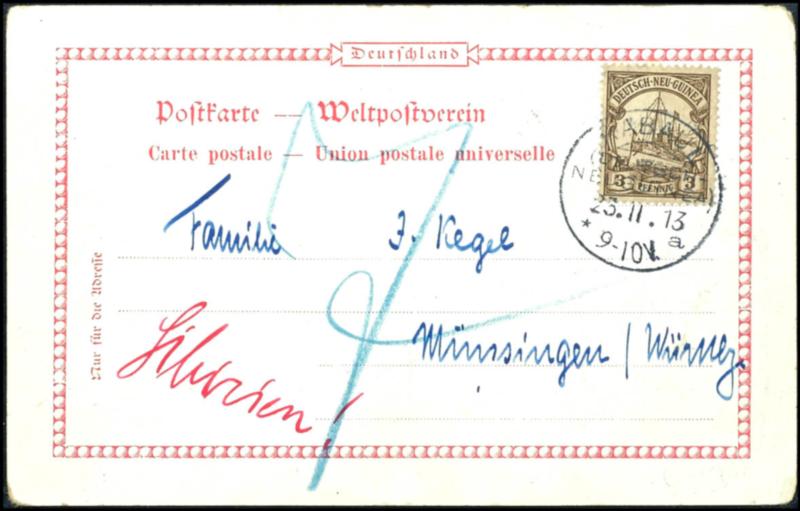 Deutschland
Postkarte — Weltpostverein
Carte postale — Union postale universelle
DEUTSCH-NEU-GUINEA
3 PFENNIG 3
23.11.13
* 9-10V. a
Familie J. Kegel
Münsingen / Württbg.
Siberien!
Nur für die Adresse